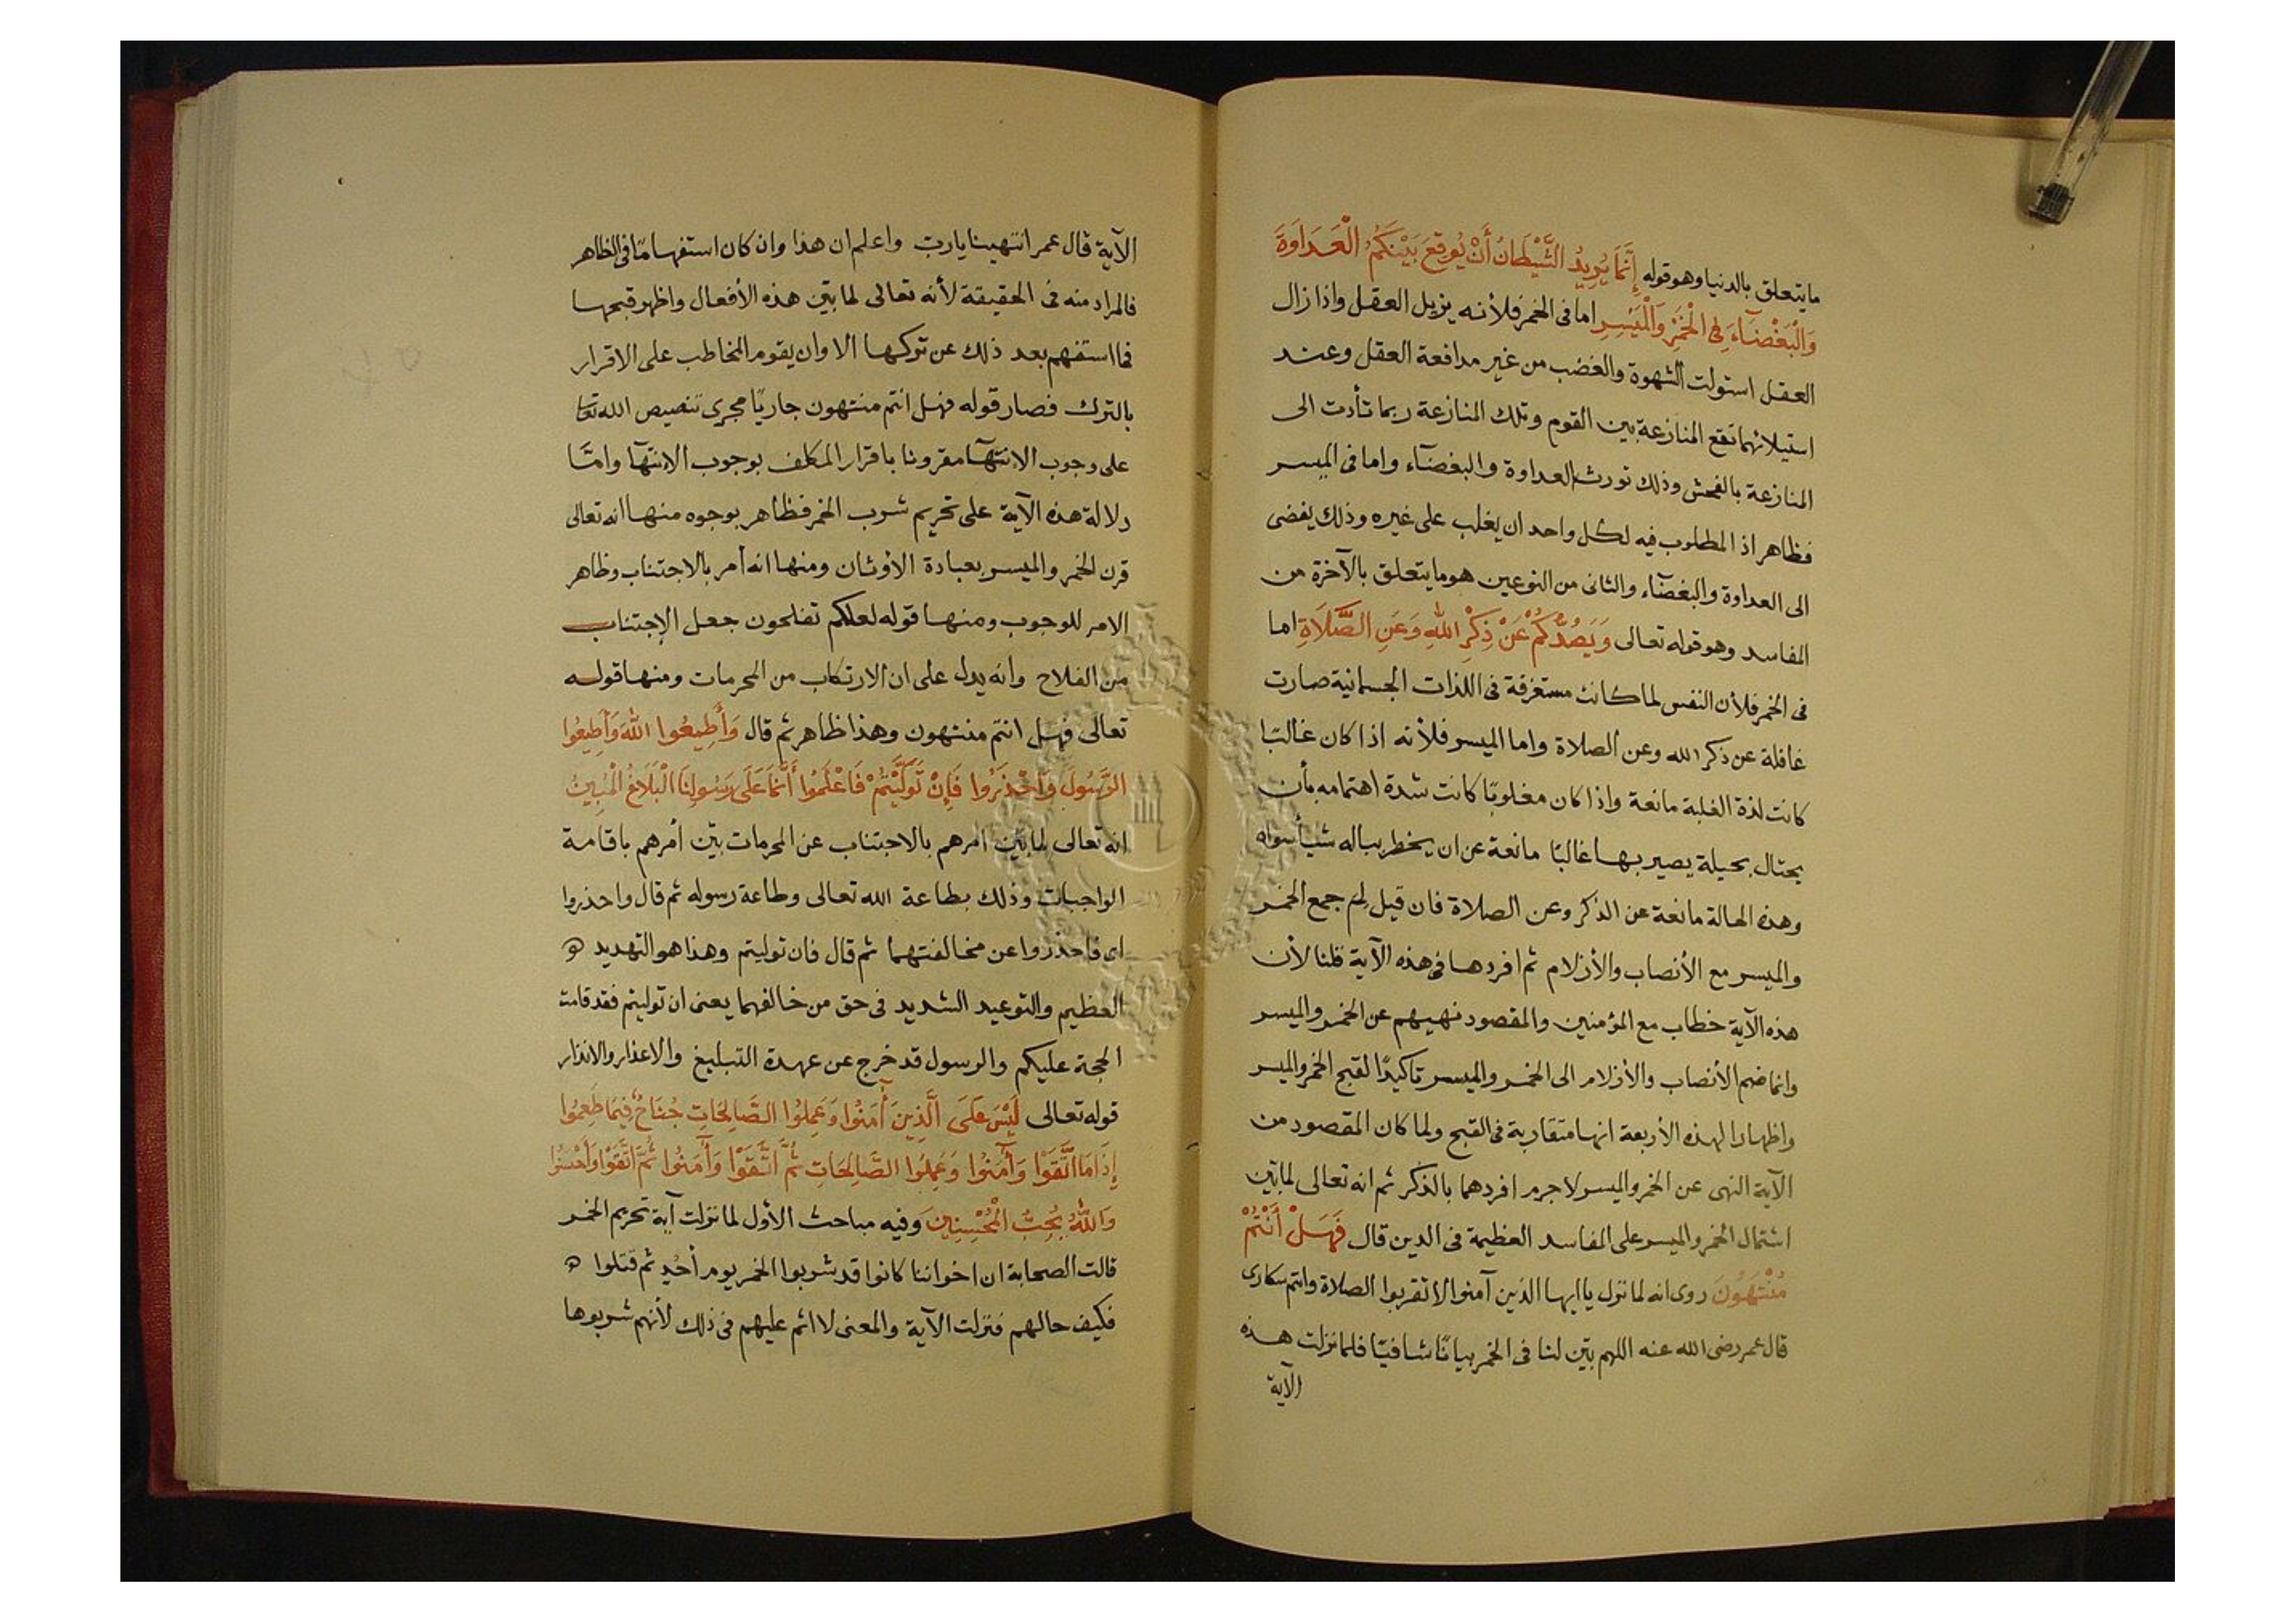 ما يتعلق بالدنيا وهو قوله إِنَّمَا يُرِيدُ الشَّيْطَانُ أَنْ يُوقِعَ بَيْنَكُمُ الْعَدَاوَةَ
وَالْبَغْضَآءَ فِي الْخَمْرِ وَالْمَيْسِرِ اما فى الخمر فلأنه يزيل العقل واذا زال
العقل استولت الشهوة والغضب من غير مدافعة العقل وعند
استيلائهما تقع المنازعة بين القوم وتلك المنازعة ربما تأدت الى
المنازعة بالفحش وذلك تورث العداوة والبغضآء واما فى الميسر
فظاهر اذ المطلوب فيه لكل واحد ان يغلب على غيره وذلك يفضى
الى العداوة والبغضآء والثانى من النوعين هو ما يتعلق بالآخرة من
المفاسد وهو قوله تعالى وَيَصُدَّكُمْ عَنْ ذِكْرِ اللهِ وَعَنِ الصَّلَاةِ اما
فى الخمر فلأن النفس لما كانت مستغرقة فى اللذات الجسمانية صارت
غافلة عن ذكر الله وعن الصلاة واما الميسر فلأنه اذا كان غالبًا
كانت لذة الغلبة مانعة واذا كان مغلوبًا كانت شدة اهتمامه بأن
يحتال بحيلة يصير بها غالبًا مانعة عن ان يخطر بباله شيأ سواه
وهذه الحالة مانعة عن الذكر وعن الصلاة فان قيل لِم جمع الخمر
والميسر مع الأنصاب والأزلام ثم افردها فى هذه الآية قلنا لأن
هذه الآية خطاب مع المؤمنين والمقصود نهيهم عن الخمر والميسر
وانما ضم الأنصاب والأزلام الى الخمر والميسر تأكيدًا لقبح الخمر والميسر
واظهارا لهذه الأربعة انها متقاربة فى القبح ولما كان المقصود من
الآية النهى عن الخمر والميسر لا جرم افردهما بالذكر ثم انه تعالى لما بيّن
اشتمال الخمر والميسر على المفاسد العظيمة فى الدين قال فَهَلْ أَنْتُمْ
مُنْتَهُونَ روى انه لما نزل يا ايها الذين آمنوا لا تقربوا الصلاة وانتم سكارى
قال عمر رضى الله عنه اللهم بيّن لنا فى الخمر بيانًا شافيًا فلما نزلت هذه
الآية
الآية قال عمر انتهينا يا ربّ واعلم ان هذا وان كان استفهامًا فى الظاهر
فالمراد منه فى الحقيقة لأنه تعالى لما بيّن هذه الأفعال واظهر قبحها
فما استفهم بعد ذلك عن تركها الا وان يقوم المخاطب على الاقرار
بالترك فصار قوله فهل انتم منتهون جاريًا مجرى تنصيص الله تعا
على وجوب الانتهآ مقرونا باقرار المكلف بوجوب الانتهآ وامّا
دلالة هذه الآية على تحريم شرب الخمر فظاهر بوجوه منها انه تعالى
قرن الخمر والميسر بعبادة الأوثان ومنها انه أمر بالاجتناب وظاهر
الامر للوجوب ومنها قوله لعلكم تفلحون جعل الإجتناب
من الفلاح وانه يدل على ان الارتكاب من المحرمات ومنها قوله
تعالى فهل انتم منتهون وهذا ظاهر ثم قال وَأَطِيعُوا اللهَ وَأَطِيعُوا
الرَّسُولَ وَاحْذَرُوا فَإِنْ تَوَلَّيْتُمْ فَاعْلَمُوا أَنَّمَا عَلَى رَسُولِنَا الْبَلَاغُ الْمُبِينُ
انه تعالى لما بيّن امرهم بالاجتناب عن المحرمات بيّن أمرهم باقامة
الواجبات وذلك بطاعة الله تعالى وطاعة رسوله ثم قال واحذروا
اى فاحذروا عن مخالفتهما ثم قال فان توليتم وهذا هو التهديد
العظيم والتوعيد الشديد فى حق من خالفهما يعنى ان توليتم فقد قامت
الحجة عليكم والرسول قد خرج عن عهدة التبليغ والاعذار والانذار
قوله تعالى لَيْسَ عَلَى الَّذِينَ أٓمَنُوا وَعَمِلُوا الصَّالِحَاتِ جُنَاحٌ فِيمَا طَعِمُوا
إِذَا مَا اتَّقَوْا وَأٓمَنُوا وَعَمِلُوا الصَّالِحَاتِ ثُمَّ اتَّقَوْا وَأٓمَنُوا ثُمَّ اتَّقَوْا وَأَحْسَنُوا
وَاللهُ يُحِبُّ الْمُحْسِنِينَ وفيه مباحث الأول لما نزلت آية تحريم الخمر
قالت الصحابة ان اخواننا كانوا قد شربوا الخمر يوم أحُدٍ ثم قتلوا
فكيف حالهم فنزلت الآية والمعنى لا اثم عليهم فى ذلك لأنهم شربوها